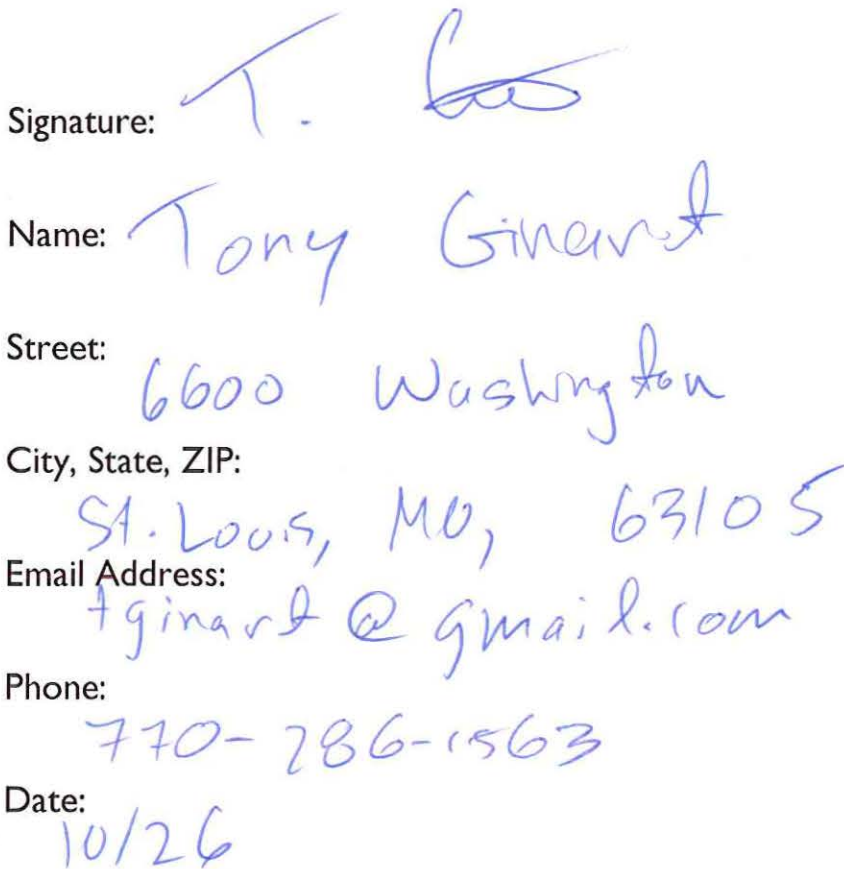 Signature: T.
Name: Tony Ginart
Street:
6600 Washington
City, State, ZIP:
St. Louis, MO, 63105
Email Address:
tginart@gmail.com
Phone:
770-286-1563
Date:
10/26